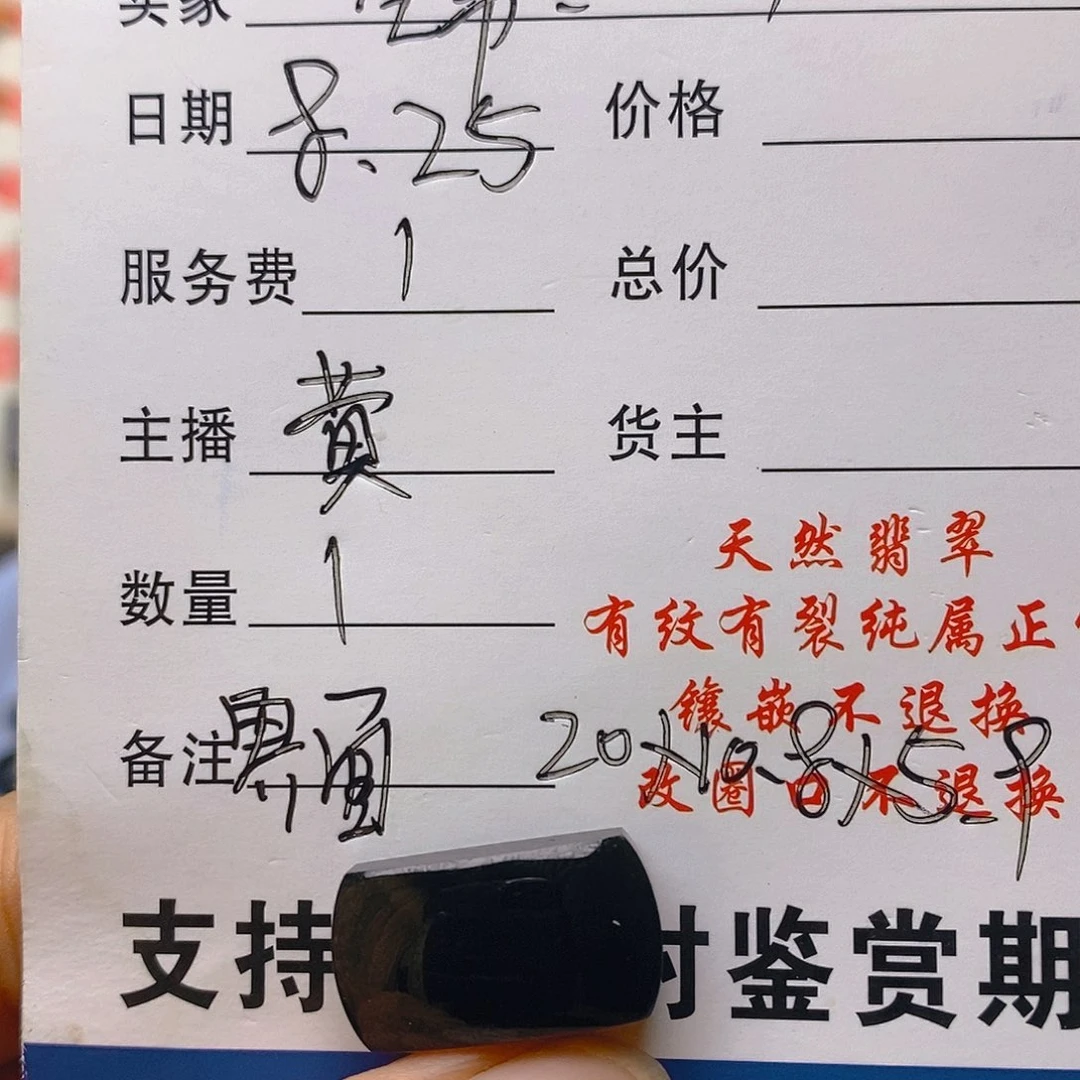 卖家
日期 8.25 价格
服务费 1 总价
主播 黄 货主
数量 1
天然翡翠
有纹有裂纯属正
镶嵌不退换
备注 20×10.8×5.9
改圈口不退换
支持 时鉴赏期